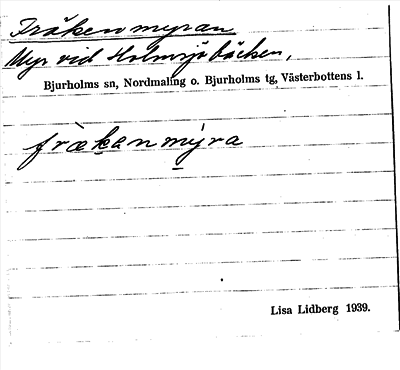 Fräkenmyran
Myr vid Holmsjöbäcken,
Bjurholms sn, Nordmaling o. Bjurholms tg, Västerbottens l.
fràekanmýra
Lisa Lidberg 1939.